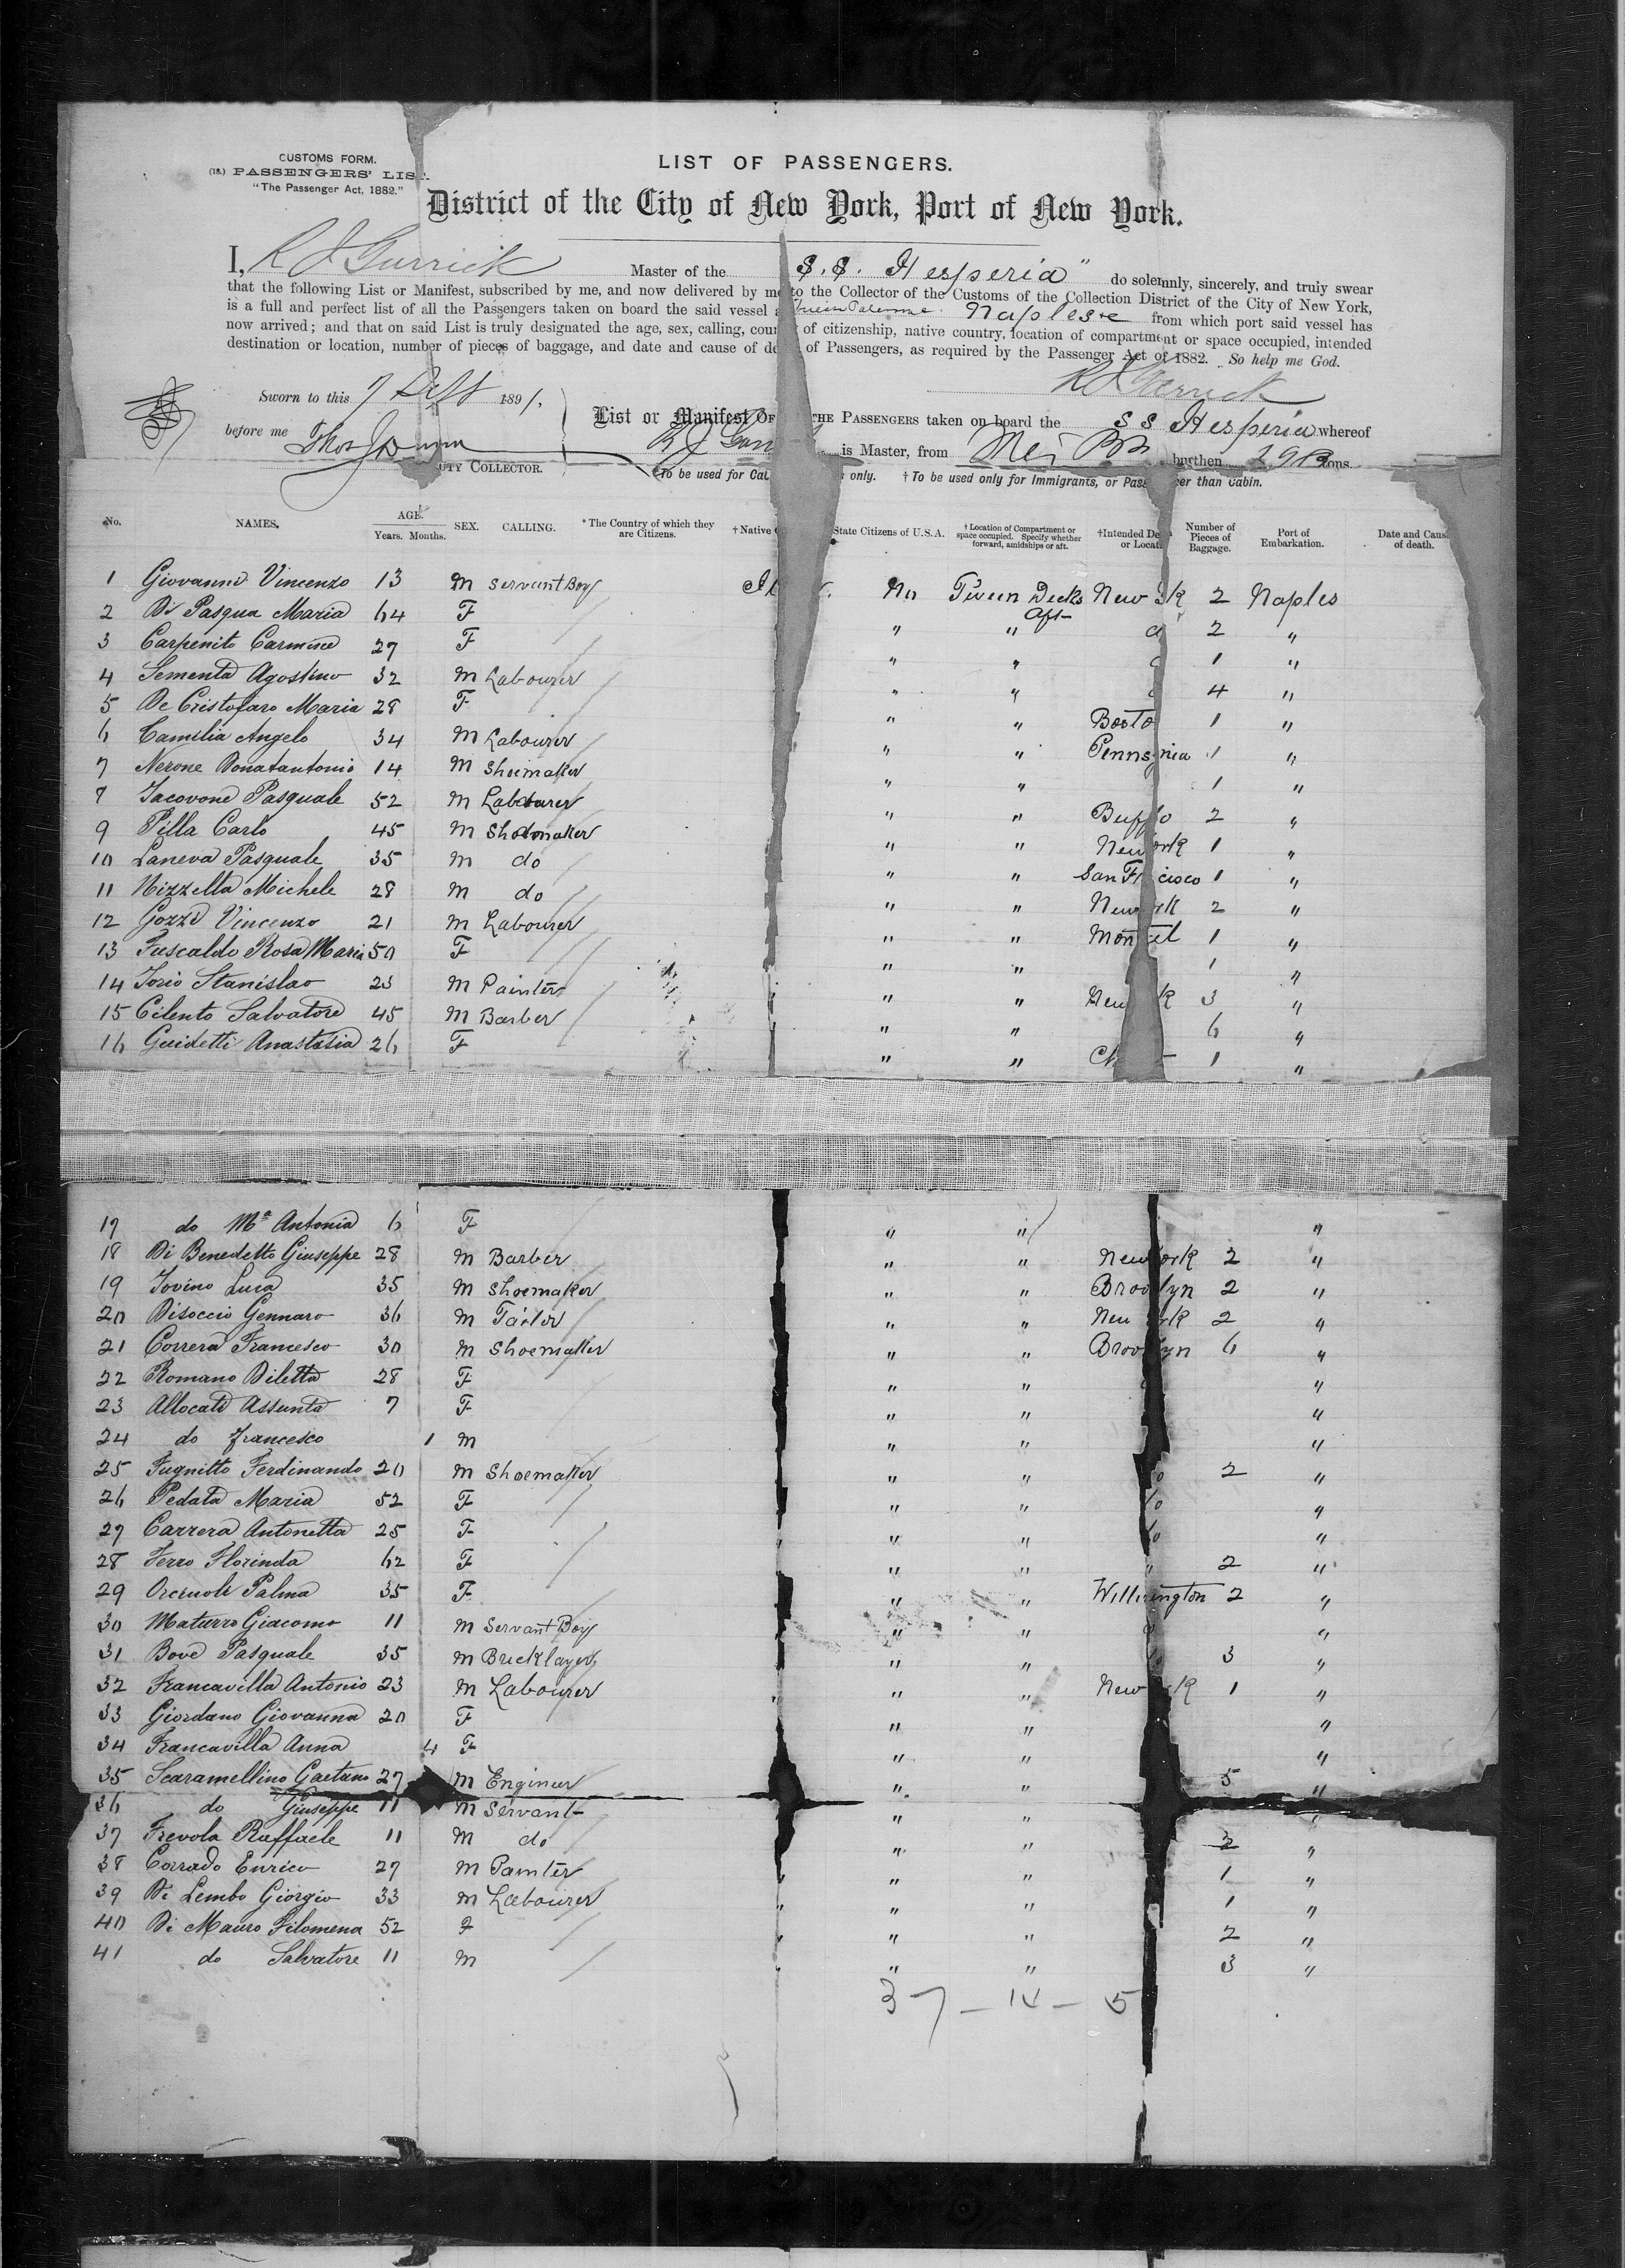 CUSTOMS FORM.
(18.) PASSENGERS' LIST.
"The Passenger Act, 1882."
LIST OF PASSENGERS.
District of the City of New York, Port of New York.
I, R J Garrick Master of the S.S. Hesperia" do solemnly, sincerely, and truly swear
that the following List or Manifest, subscribed by me, and now delivered by me to the Collector of the Customs of the Collection District of the City of New York,
is a full and perfect list of all the Passengers taken on board the said vessel Naples from which port said vessel has
now arrived; and that on said List is truly designated the age, sex, calling, of citizenship, native country, location of compartment or space occupied, intended
destination or location, number of pieces of baggage, and date and cause of of Passengers, as required by the Passenger Act of 1882. So help me God.
R J Garrick
Sworn to this 7 Sept 1891.
before me
COLLECTOR.
List or Manifest OF THE PASSENGERS taken on board the S S Hesperia whereof
R J is Master, from burthen tons
*To be used for only. †To be used only for Immigrants, or than Cabin.
No. NAMES. AGE. Years. Months. SEX. CALLING. *The Country of which they are Citizens. †Native State Citizens of U.S.A. †Location of Compartment or space occupied. Specify whether forward, amidships or aft. †Intended Number of Pieces of Baggage. Port of Embarkation. Date and of death.
1 Giovanni Vincenzo 13 M Servant Boy No Tween Decks Aft New 2 Naples
2 Di Pasqua Maria 64 F " " 2 "
3 Carpenito Carmine 27 F " " 1 "
4 Sementa Agostino 32 M Labourer " " 4 "
5 De Cristofaro Maria 28 F " " Bosto 1 "
6 Camilia Angelo 34 M Labourer " " Penns nia 1 "
7 Nerone Donatantonio 14 M Shoemaker " " 1 "
8 Iacovone Pasquale 52 M Labourer " " Buff o 2 "
9 Pilla Carlo 45 M Shoemaker " " New ork 1 "
10 Laneva Pasquale 35 M do " " San F cisco 1 "
11 Nizzella Michele 28 M do " " New rk 2 "
12 Gozzi Vincenzo 21 M Labourer " " Mon 1 "
13 Fuscaldo Rosa Maria 50 F " " 1 "
14 Iorio Stanislao 23 M Painter " " New k 3 "
15 Cilento Salvatore 45 M Barber " " 6 "
16 Guidetti Anastasia 26 F " " 1 "
17 do Mª Antonia 6 F " " "
18 Di Benedetto Giuseppe 28 M Barber " " New ork 2 "
19 Iovino Luca 35 M Shoemaker " " Brooklyn 2 "
20 Disoccio Gennaro 36 M Tailor " " New rk 2 "
21 Correra Francesco 30 M Shoemaker " " Brooklyn 6 "
22 Romano Diletta 28 F " " "
23 Allocati Assunta 7 F " " "
24 do Francesco 1 M " " "
25 Fugnitto Ferdinando 20 M Shoemaker " " 2 "
26 Pedata Maria 52 F " " "
27 Carrera Antonetta 25 F " " "
28 Ferro Florinda 62 F " " " 2 "
29 Orcruoli Palma 35 F " " Wilmington 2 "
30 Maturro Giacomo 11 M Servant Boy " " "
31 Bove Pasquale 35 M Bricklayer " " 3 "
32 Francavilla Antonio 23 M Labourer " " New k 1 "
33 Giordano Giovanna 20 F " " "
34 Francavilla Anna 4 F " " "
35 Scaramellino Gaetano 27 M Engineer " " 5 "
36 do Giuseppe 11 M Servant " " "
37 Frevola Raffaele 11 M do " " 2 "
38 Corrado Enrico 27 M Painter " " 1 "
39 Di Lembo Giorgio 33 M Labourer " " 1 "
40 Di Mauro Filomena 52 F " " 2 "
41 do Salvatore 11 M " " 3 "
37 – 14 – 5